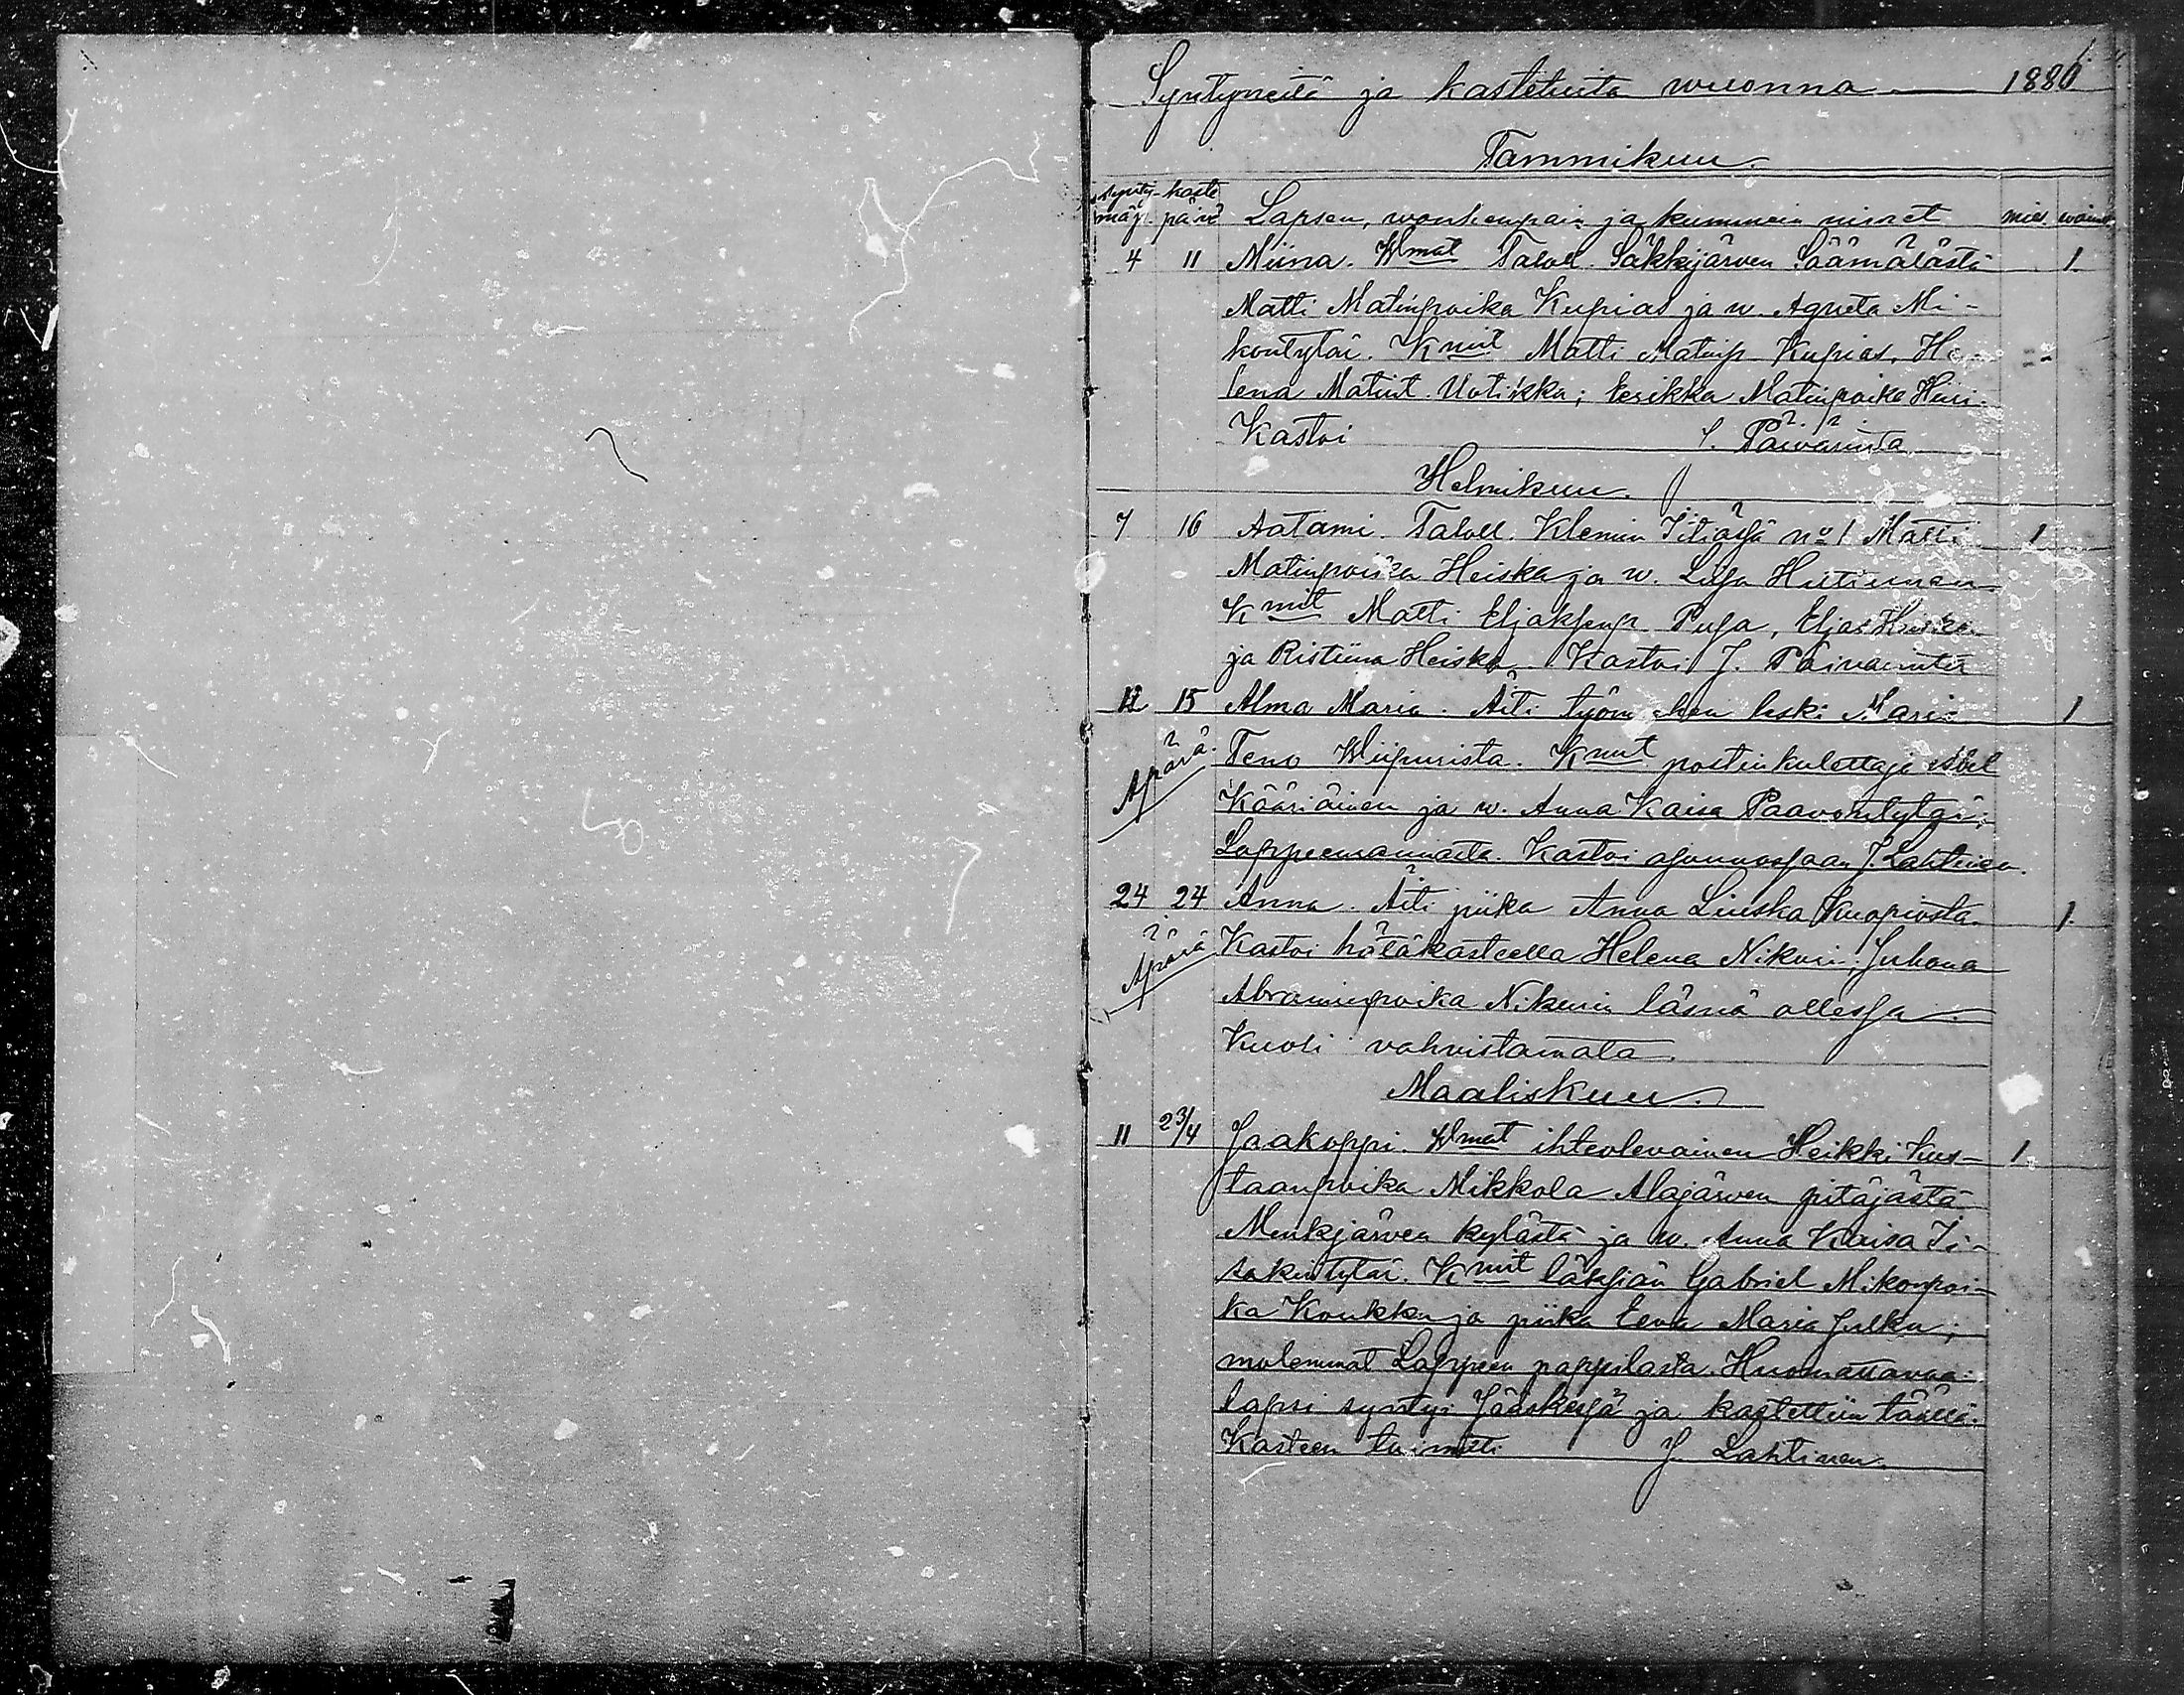 1.
Syntyneitä ja kastetuita wuonna — 1880
Tammikuu.
synty- kaste
mäp. päivä Lapsen, wanhempain ja kummein nimet mies. waimo
4 11 Miina. Wmat Taloll. Säkkijärven Säämälästä 1.
Matti Matinpoika Kupias ja w. Agneta Mi-
kontytär. Kmit Matti Matinp. Kupias, He-
lena Matint. Uotikka; Eerikka Matinpoika Hiiri.
Kastoi J. Päivärinta
Helmikuu.
7 16 Aatami. Taloll. Klemin Iitiässä No 1 Matti 1
Matinpoika Heiska ja w. Liisa Hietiinnen
Kmit Matti Eljaksenp. Pusa, Eljas Heiska
ja Ristiina Heiska. Kastoi J. Päivärinta
12 15 Alma Maria. Äiti työmiehen leski Maria 1
Äpärä. Teno Wiipurista. Kmit postinkulettaja Abel
Kääriäinen ja w. Anna Kaisa Paavontytär;
Lappeenrannasta. Kastoi asunnossaan J. Lahtinen.
24 24 Anna. Äiti piika Anna Liuska Kuopiosta. 1.
Äpärä Kastoi hätäkasteella Helena Nikuin; Juhana
Abraminpoika Nikunin läsnä ollessa.
Kuoli vahvistamata.
Maaliskuu.
11 23/4 Jaakoppi. Wmat ihteolevainen Heikki Kus- 1.
taanpoika Mikkola Alajärven pitäjästä
Menkjärven kylästä ja w. Anna Kaisa Ii-
sakintytär. Kmit läksiän Gabriel Mikonpoi-
ka Koukku ja piika Eeva Maria Julku;
molemmat Lappeen pappilasta. Huomattavaa:
lapsi syntyi Jääskessä ja kastettiin täällä.
Kasteen toimitti J. Lahtinen.